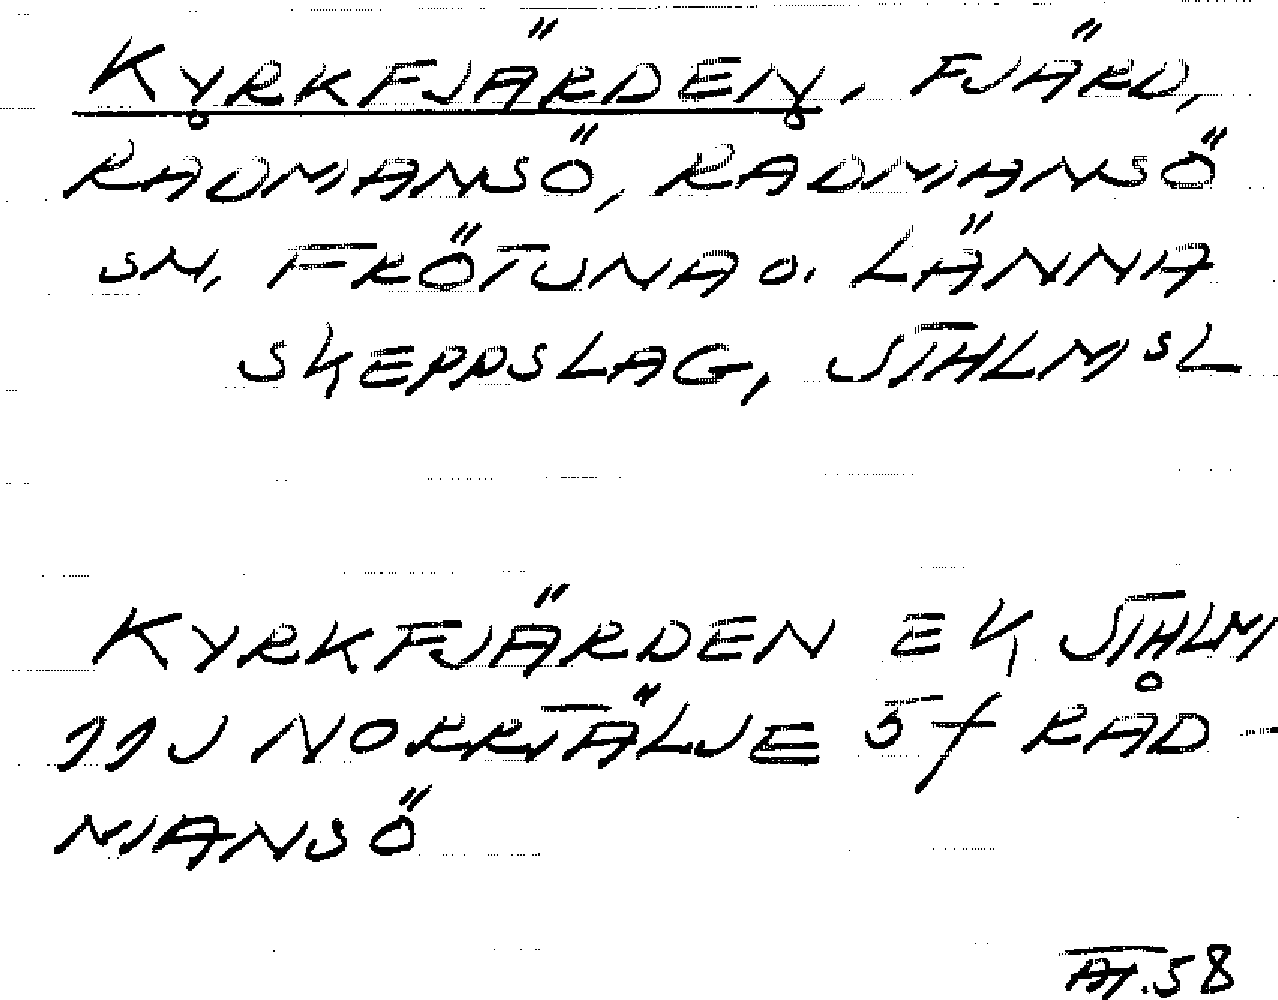 KYRKFJÄRDEN, FJÄRD,
RÅDMANSÖ, RÅDMANSÖ
SN, FRÖTUNA O. LÄNNA
SKEPPSLAG, STHLMSL
KYRKFJÄRDEN EK STHLM
11J NORRTÄLJE 5f RÅD-
MANSÖ
58